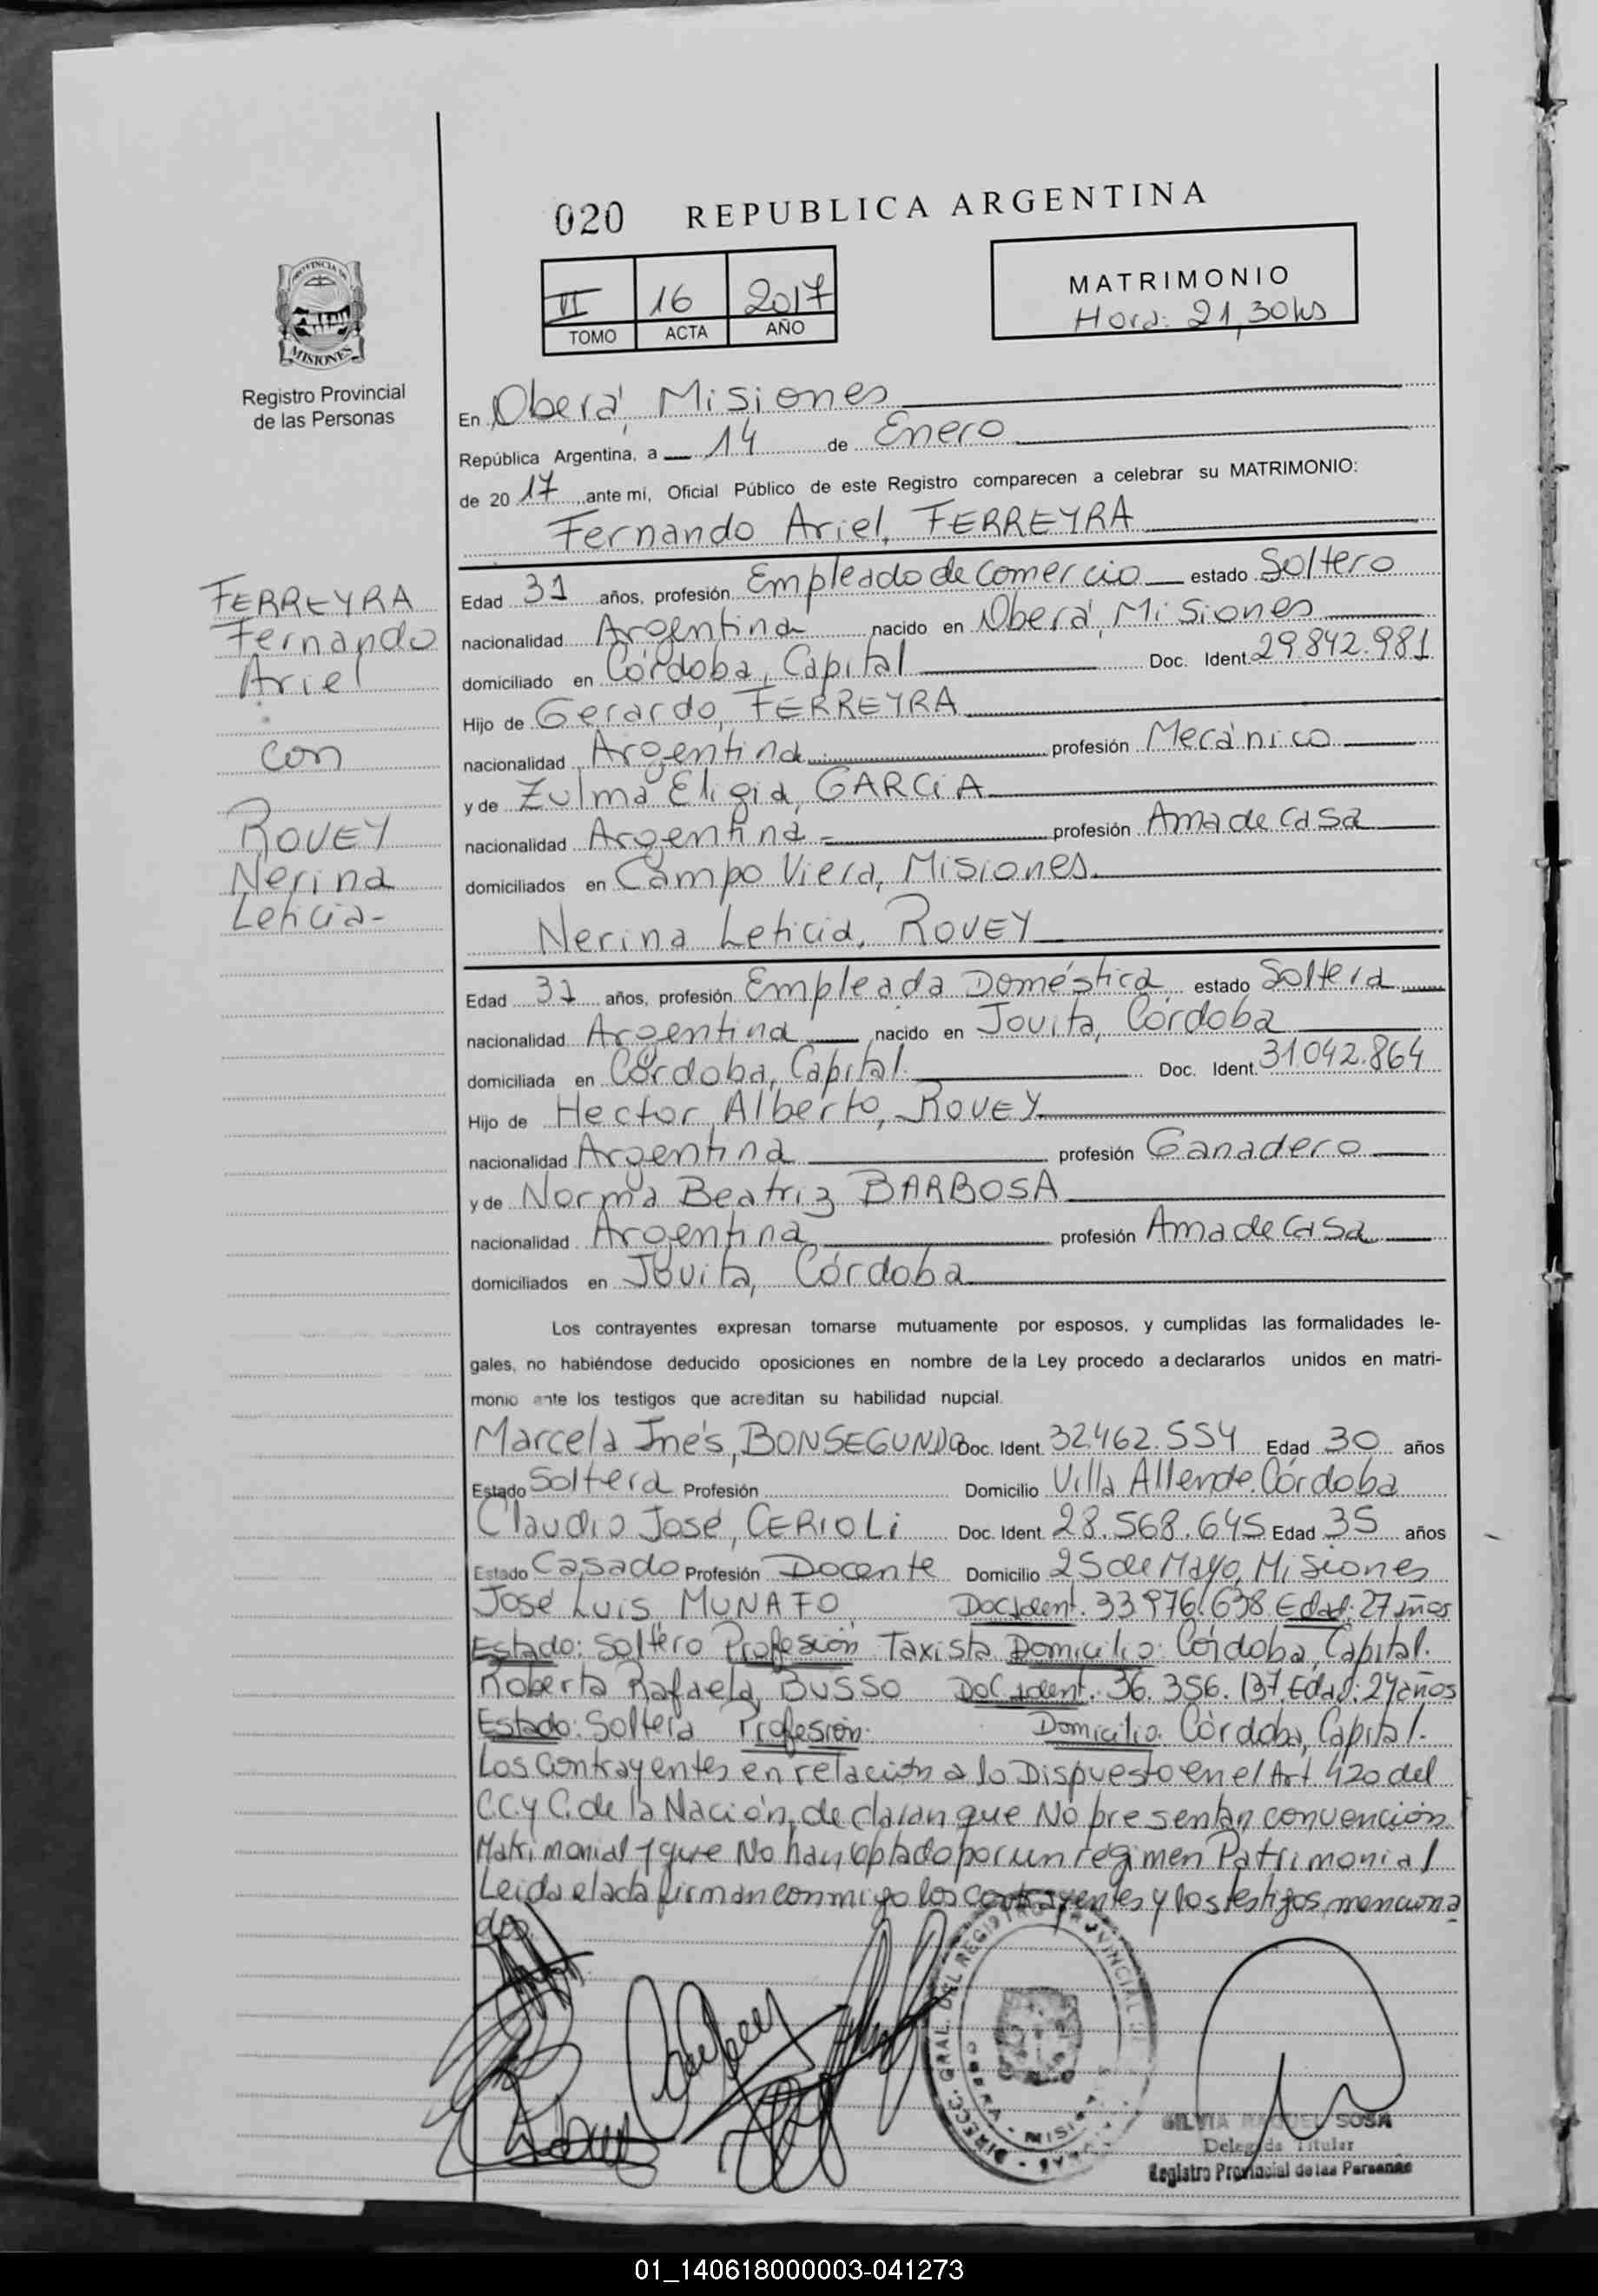 020 REPUBLICA ARGENTINA
VI 16 2017
TOMO ACTA AÑO
MATRIMONIO
Hora: 21,30hs
PROVINCIA DE
MISIONES
Registro Provincial
de las Personas
En Oberá, Misiones
República Argentina, a 14 de Enero
de 2017, ante mí, Oficial Público de este Registro comparecen a celebrar su MATRIMONIO:
Fernando Ariel, FERREYRA
FERREYRA
Fernando
Ariel
con
ROVEY
Nerina
Leticia-
Edad 31 años, profesión Empleado de Comercio estado Soltero
nacionalidad Argentina nacido en Oberá, Misiones
domiciliado en Córdoba, Capital Doc. Ident. 29.842.981
Hijo de Gerardo, FERREYRA
nacionalidad Argentina profesión Mecánico
y de Zulma Eligia, GARCIA
nacionalidad Argentina profesión Ama de casa
domiciliados en Campo Viera, Misiones.
Nerina Leticia, ROVEY
Edad 31 años, profesión Empleada Doméstica estado Soltera
nacionalidad Argentina nacido en Jovita, Córdoba
domiciliada en Córdoba, Capital. Doc. Ident. 31.042.864
Hijo de Hector Alberto, ROVEY
nacionalidad Argentina profesión Ganadero
y de Norma Beatriz BARBOSA
nacionalidad Argentina profesión Ama de casa
domiciliados en Jovita, Córdoba
Los contrayentes expresan tomarse mutuamente por esposos, y cumplidas las formalidades le-
gales, no habiéndose deducido oposiciones en nombre de la Ley procedo a declararlos unidos en matri-
monio ante los testigos que acreditan su habilidad nupcial.
Marcela Inés, BONSEGUNDO Doc. Ident. 32.462.554 Edad 30 años
Estado Soltera Profesión Domicilio Villa Allende. Córdoba
Claudio José, CERIOLI Doc. Ident. 28.568.645 Edad 35 años
Estado Casado Profesión Docente Domicilio 25 de Mayo, Misiones
José Luis MUNAFO, Doc Ident. 33.976.638 Edad: 27 años
Estado: Soltero Profesión Taxista Domicilio: Córdoba, Capital.
Roberta Rafaela, BUSSO Doc Ident. 36.356.137. Edad: 24 años
Estado: Soltera Profesión: Domicilio: Córdoba, Capital.
Los Contrayentes en relación a lo Dispuesto en el Art 420 del
C.C.y C. de la Nación, declaran que No presentan convención
Matrimonial y que No han optado por un régimen Patrimonial
Leida el acta firman conmigo los contrayentes y los testigos menciona
dos.
DIRECC. GRAL. DEL REGISTRO PROVINCIAL
OBERA - MISIONES
SILVIA RAQUEL SOSA
Delegada Titular
Registro Provincial de las Personas
01_140618000003-041273